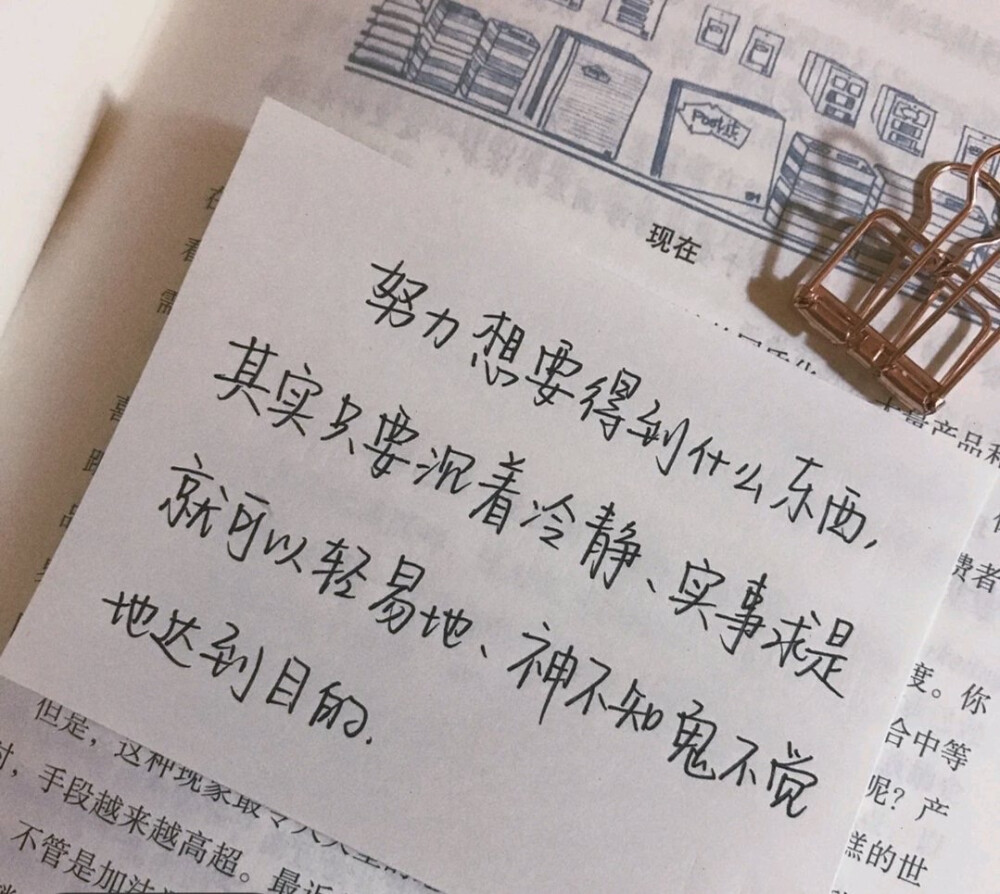 Post-it
现在
努力想要得到什么东西,
其实只要沉着冷静、实事求是
就可以轻易地、神不知鬼不觉
地达到目的.
产品和
费者
度。你
合中等
呢？产
糕的世
但是，这种现象最令人
时，手段越来越高超。最近
不管是加法